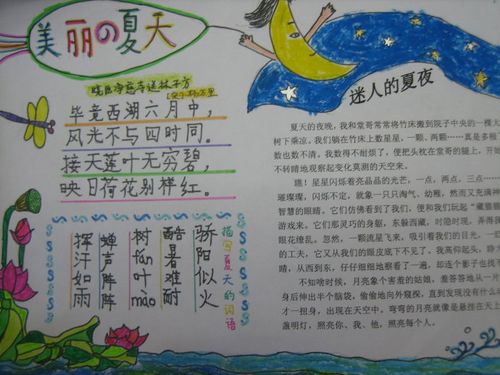 美丽の夏天
晓出净慈寺送林子方
毕竟西湖六月中，
风光不与四时同。
接天莲叶无穷碧，
映日荷花别样红。
描写夏天的词语
骄阳似火
酷暑难耐
树fán叶mào
蝉言阵阵
挥汗如雨
迷人的夏夜
夏天的夜晚，我和堂哥常常将竹床搬到院子中央的一棵大
树下乘凉。我们躺在竹床上数星星，一颗、两颗……真是多极
数也数不清。我数得不耐烦了，便把头枕在堂哥的腿上，开始
不转睛地观察起变化莫测的天空来。
瞧！星星闪烁着亮晶晶的光芒，一点，两点，三点……
璀璨璨，闪烁不定，就象一只只淘气、幼稚，然而又充满
智慧的眼睛。它们仿佛看到了我们，便和我们玩起“藏猫猫
游戏来。它们那灵巧的身躯，东躲西藏，时隐时现，弄得
眼花缭乱。忽然，一颗流星飞来，吸引着我们的目光。一
的工夫，它又从我们的眼皮底下不见了。我蒸仰起头，睁
睛，从西到东，仔仔细细地察看了一遍，却连个影子也找不
不知啥时候，月亮象个害羞的姑娘，羞答答地从一片
身后伸出半个脑袋，偷偷地向外窥探，直到发现没有什么
才一扭身，出现在天空中。弯弯的月亮就像是悬挂在天上
盏明灯，照亮你、我、他，照亮每个人。